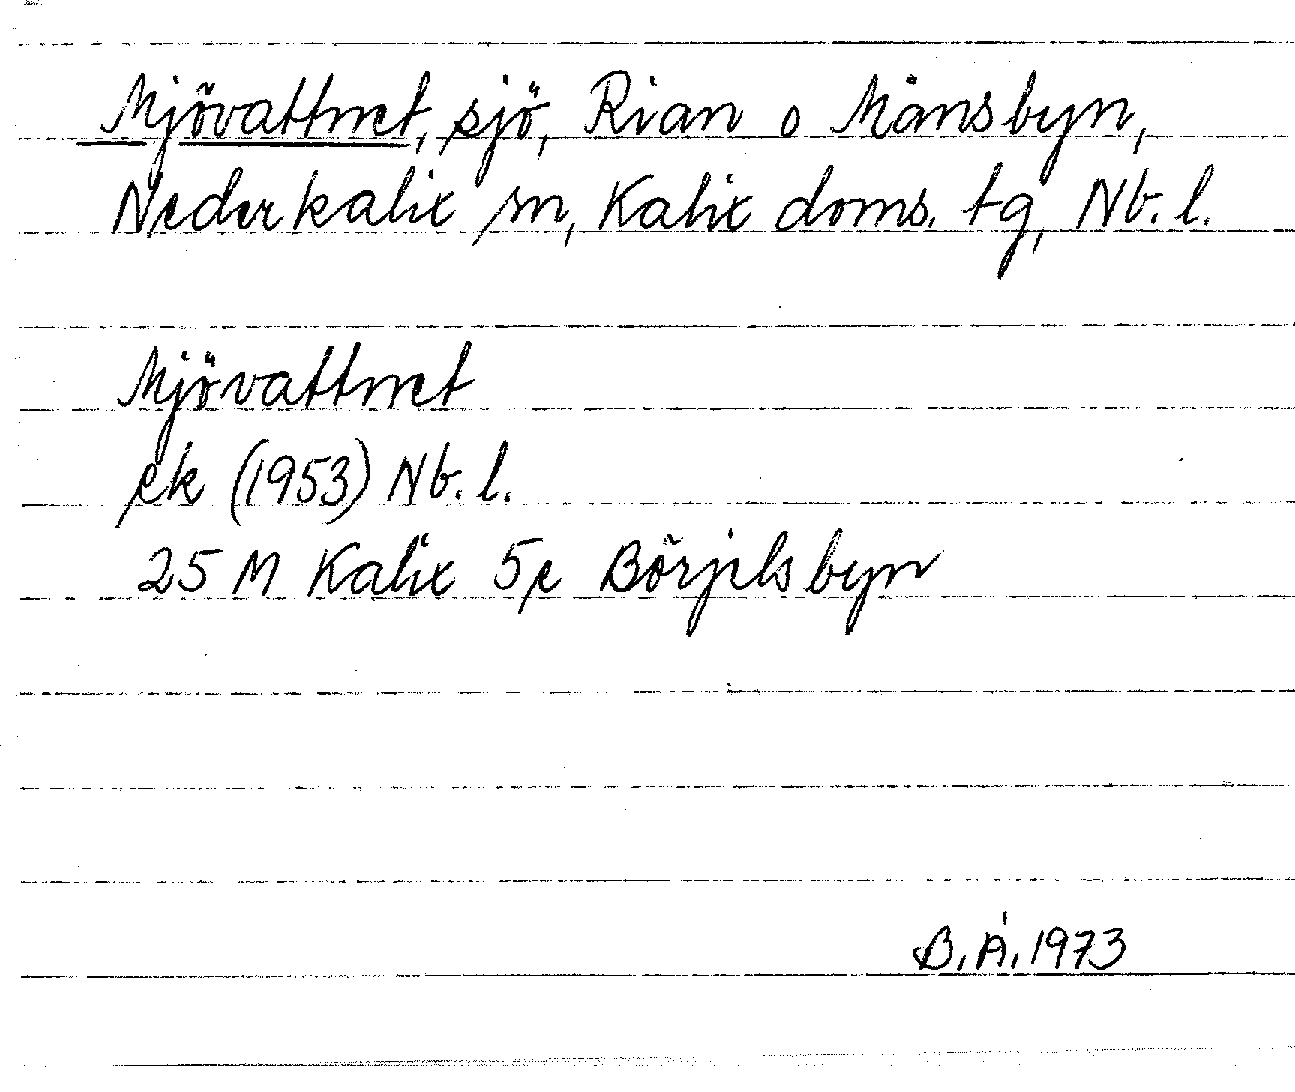 Mjövattnet, sjö, Rian o Månsbyn,
Nederkalix sn, Kalix doms. tg, Nb. l.
Mjövattnet
ek (1953) Nb. l.
25 M Kalix 5e Börjelsbyn
B. Å. 1973